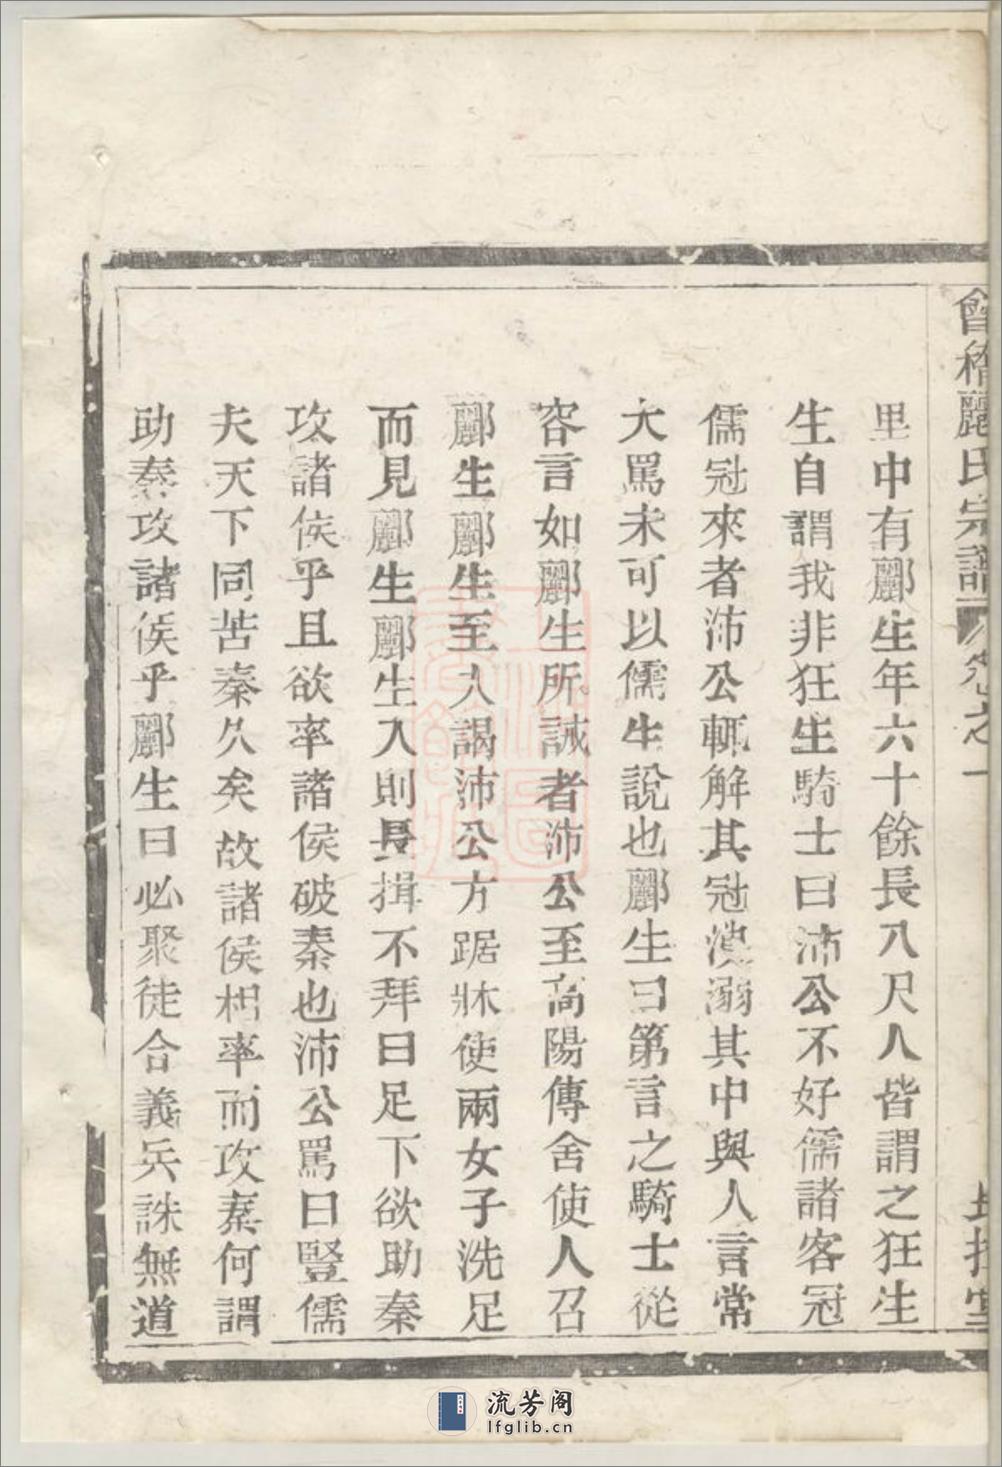 會稽酈氏宗譜 卷之一
長揖堂
里中有酈生年六十餘長八尺人皆謂之狂生
生自謂我非狂生騎士曰沛公不好儒諸客冠
儒冠來者沛公輒解其冠溲溺其中與人言常
大罵未可以儒生說也酈生曰第言之騎士從
容言如酈生所誡者沛公至高陽傳舍使人召
酈生酈生至入謁沛公方踞牀使兩女子洗足
而見酈生酈生入則長揖不拜曰足下欲助秦
攻諸侯乎且欲率諸侯破秦也沛公罵曰豎儒
夫天下同苦秦久矣故諸侯相率而攻秦何謂
助秦攻諸侯乎酈生曰必聚徒合義兵誅無道
流芳阁
lfglib.cn